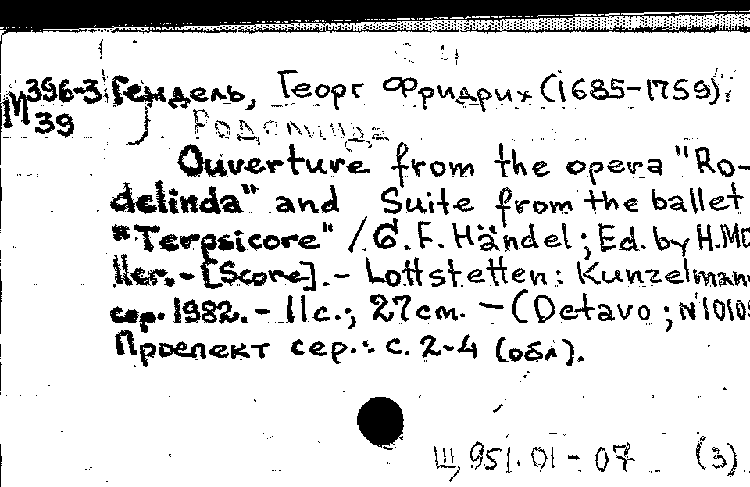 М 396-3 Гендель, Георг Фридрих (1685-1759).
39 Роделинда
Ouverture from the opera "Ro-
delinda" and Suite from the ballet
"Terpsicore" / G. F. Händel ; Ed. by H.Mü
ller. - [Score]. - Lottstetten : Kunzelmann
cop. 1982. - 11 с.; 27 см. - (Octavo ; N 10109
Проспект сер.: с. 2-4 (обл).
Щ 951.01-07 (3)